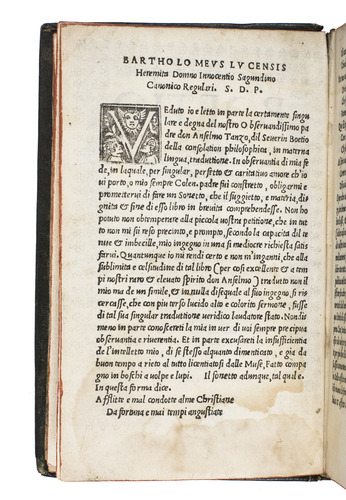 BARTHOLOMEVS LVCENSIS
Heremita Domno Innocentio Sagundino
Canonico Regulari. S. D. P.
VEduto io e letto in parte la certamente singu
lare e degna del nostro Observandissimo pa
dre don Anselmo Tanzo, dil Severin Boetio
della consolation philosophica, in materna
lingua, traductione. In observantia di mia fe
de, in laquale, per singular, perfetto & caritativo amore ch'io
vi porto, o mio sempre Colen. padre fui constretto, obligarmi e
promettervi di fare un Sonetto, che il suggietto, e materia, di
gnità e fine di esso libro in brevita comprehendesse. Non ho
potuto non obtemperare alla piccola vostra petitione, che in tut
to non mi sii reso precinto, e prompto, secondo la capacita dil te
nue & imbecille, mio ingegno in una si mediocre richiesta satis
farvi. Quantunque io mi rendi certo e non m'inganni, che alla
sublimita e celsitudine di tal libro (per cosi excellente & a tem
pi nostri raro & elevato spirito don Anselmo) tradutto non il
mio ma de un simile, & in nulla disequale al suo ingegno, si ri
cercasse, che con piu terso lucido alto e colorito sermone, fusse
di tal sua singular traductione veridico laudatore stato. Nondi
meno in parte conoscereti la mia in ver di voi sempre precipua
observantia e riverentia. Et in parte excusareti la insufficientia
de l'intelletto mio, di se stesso alquanto dimenticato, e gia da
buon tempo a rieto al tutto licentiatosi dalle Muse, fatto compa
gno in boschi a volpe e lupi. Il sonetto adunque, tal qual e.
In questa forma dice.
Afflitte e mal condotte alme Christiane
Da fortuna e mai tempi angustiate